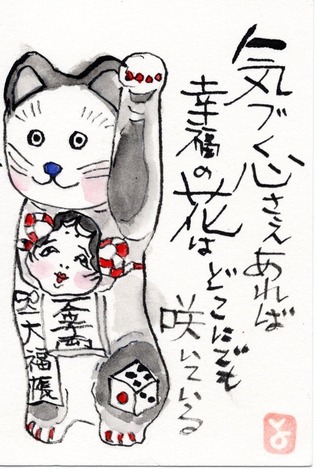 気づく心さえあれば
幸福の花はどこにでも
咲いている
大福帳